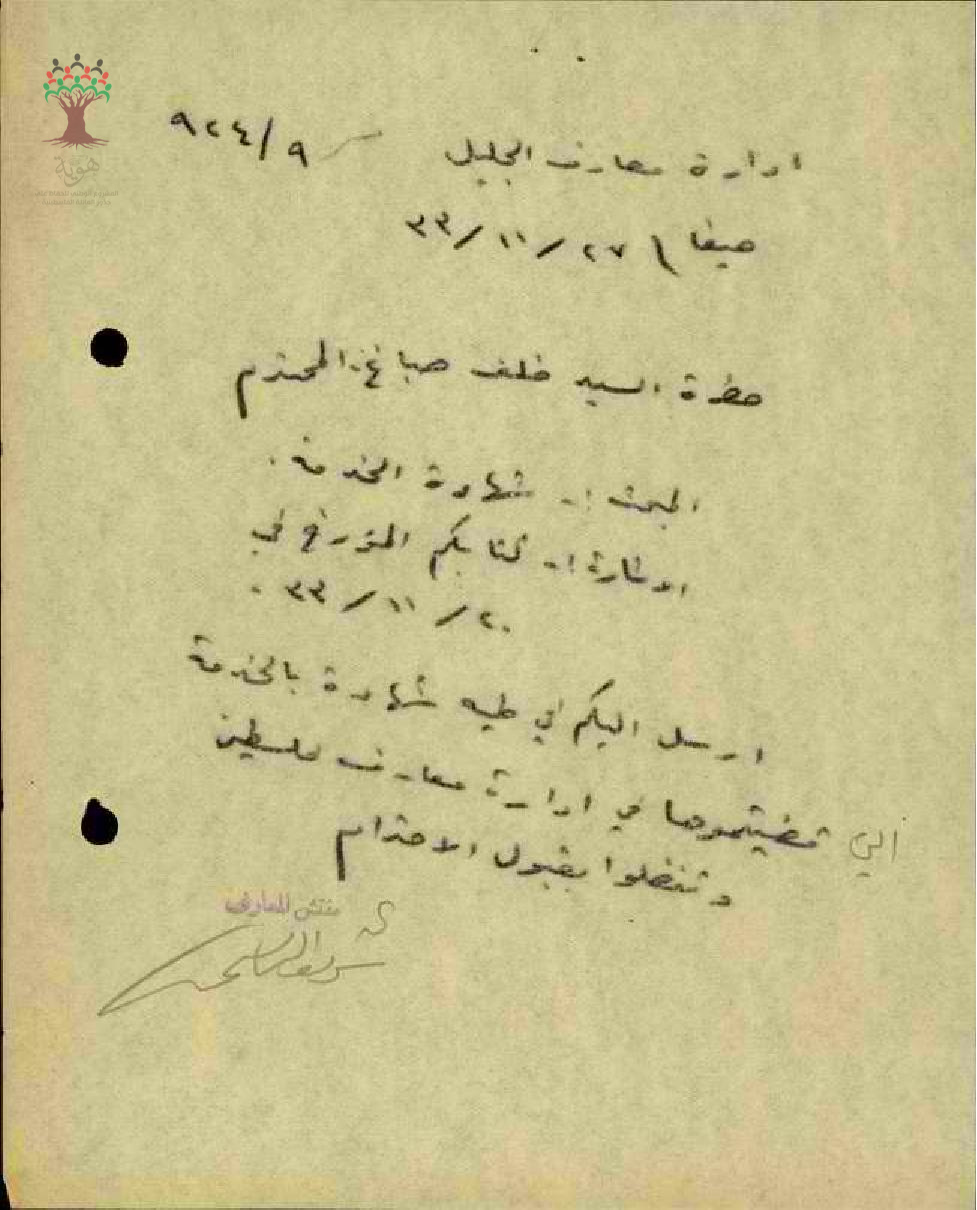 ادارة معارف الجليل ٩٢٤/٩
حيفا \ ٢٧/١١/٣٣
حضرة السيد خلف صباغ المحترم
المبحث :- شهادة الخدمة .
الاشارة :- كتابكم المؤرخ في
٢٠/١١/٣٣ .
ارسل اليكم في طيه شهادة بالخدمة
التي قضيتموها في ادارة معارف فلسطين
وتفضلوا بقبول الاحترام
مفتش المعارف
هوية